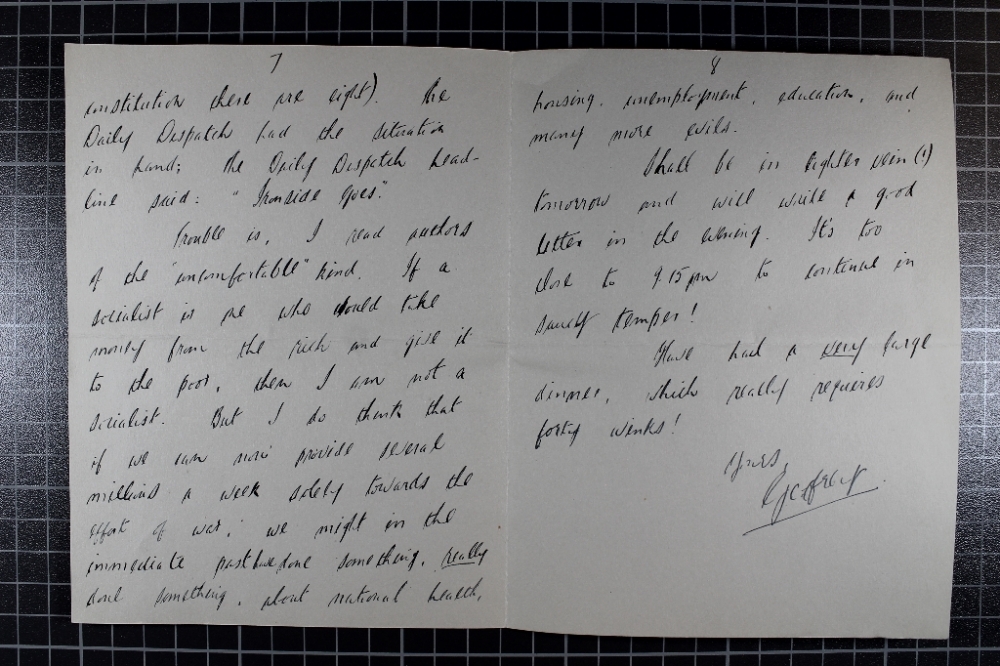 7
constitution there are eight). The
Daily Dispatch had the situation
in hand; the Daily Dispatch head-
line said: "Ironside Goes".
Trouble is, I read authors
of the "uncomfortable" kind. If a
socialist is one who would take
money from the rich and give it
to the poor, then I am not a
socialist. But I do think that
if we can now provide several
millions a week solely towards the
effort of war, we might in the
immediate past have done something, really
done something, about national health,
8
housing, unemployment, education, and
many more evils.
Shall be in lighter vein (!)
tomorrow and will write a good
letter in the evening. It's too
close to 9.15pm to continue in
temper!
Have had a very large
dinner, which really requires
forty winks!
Yours,
Geoffrey.